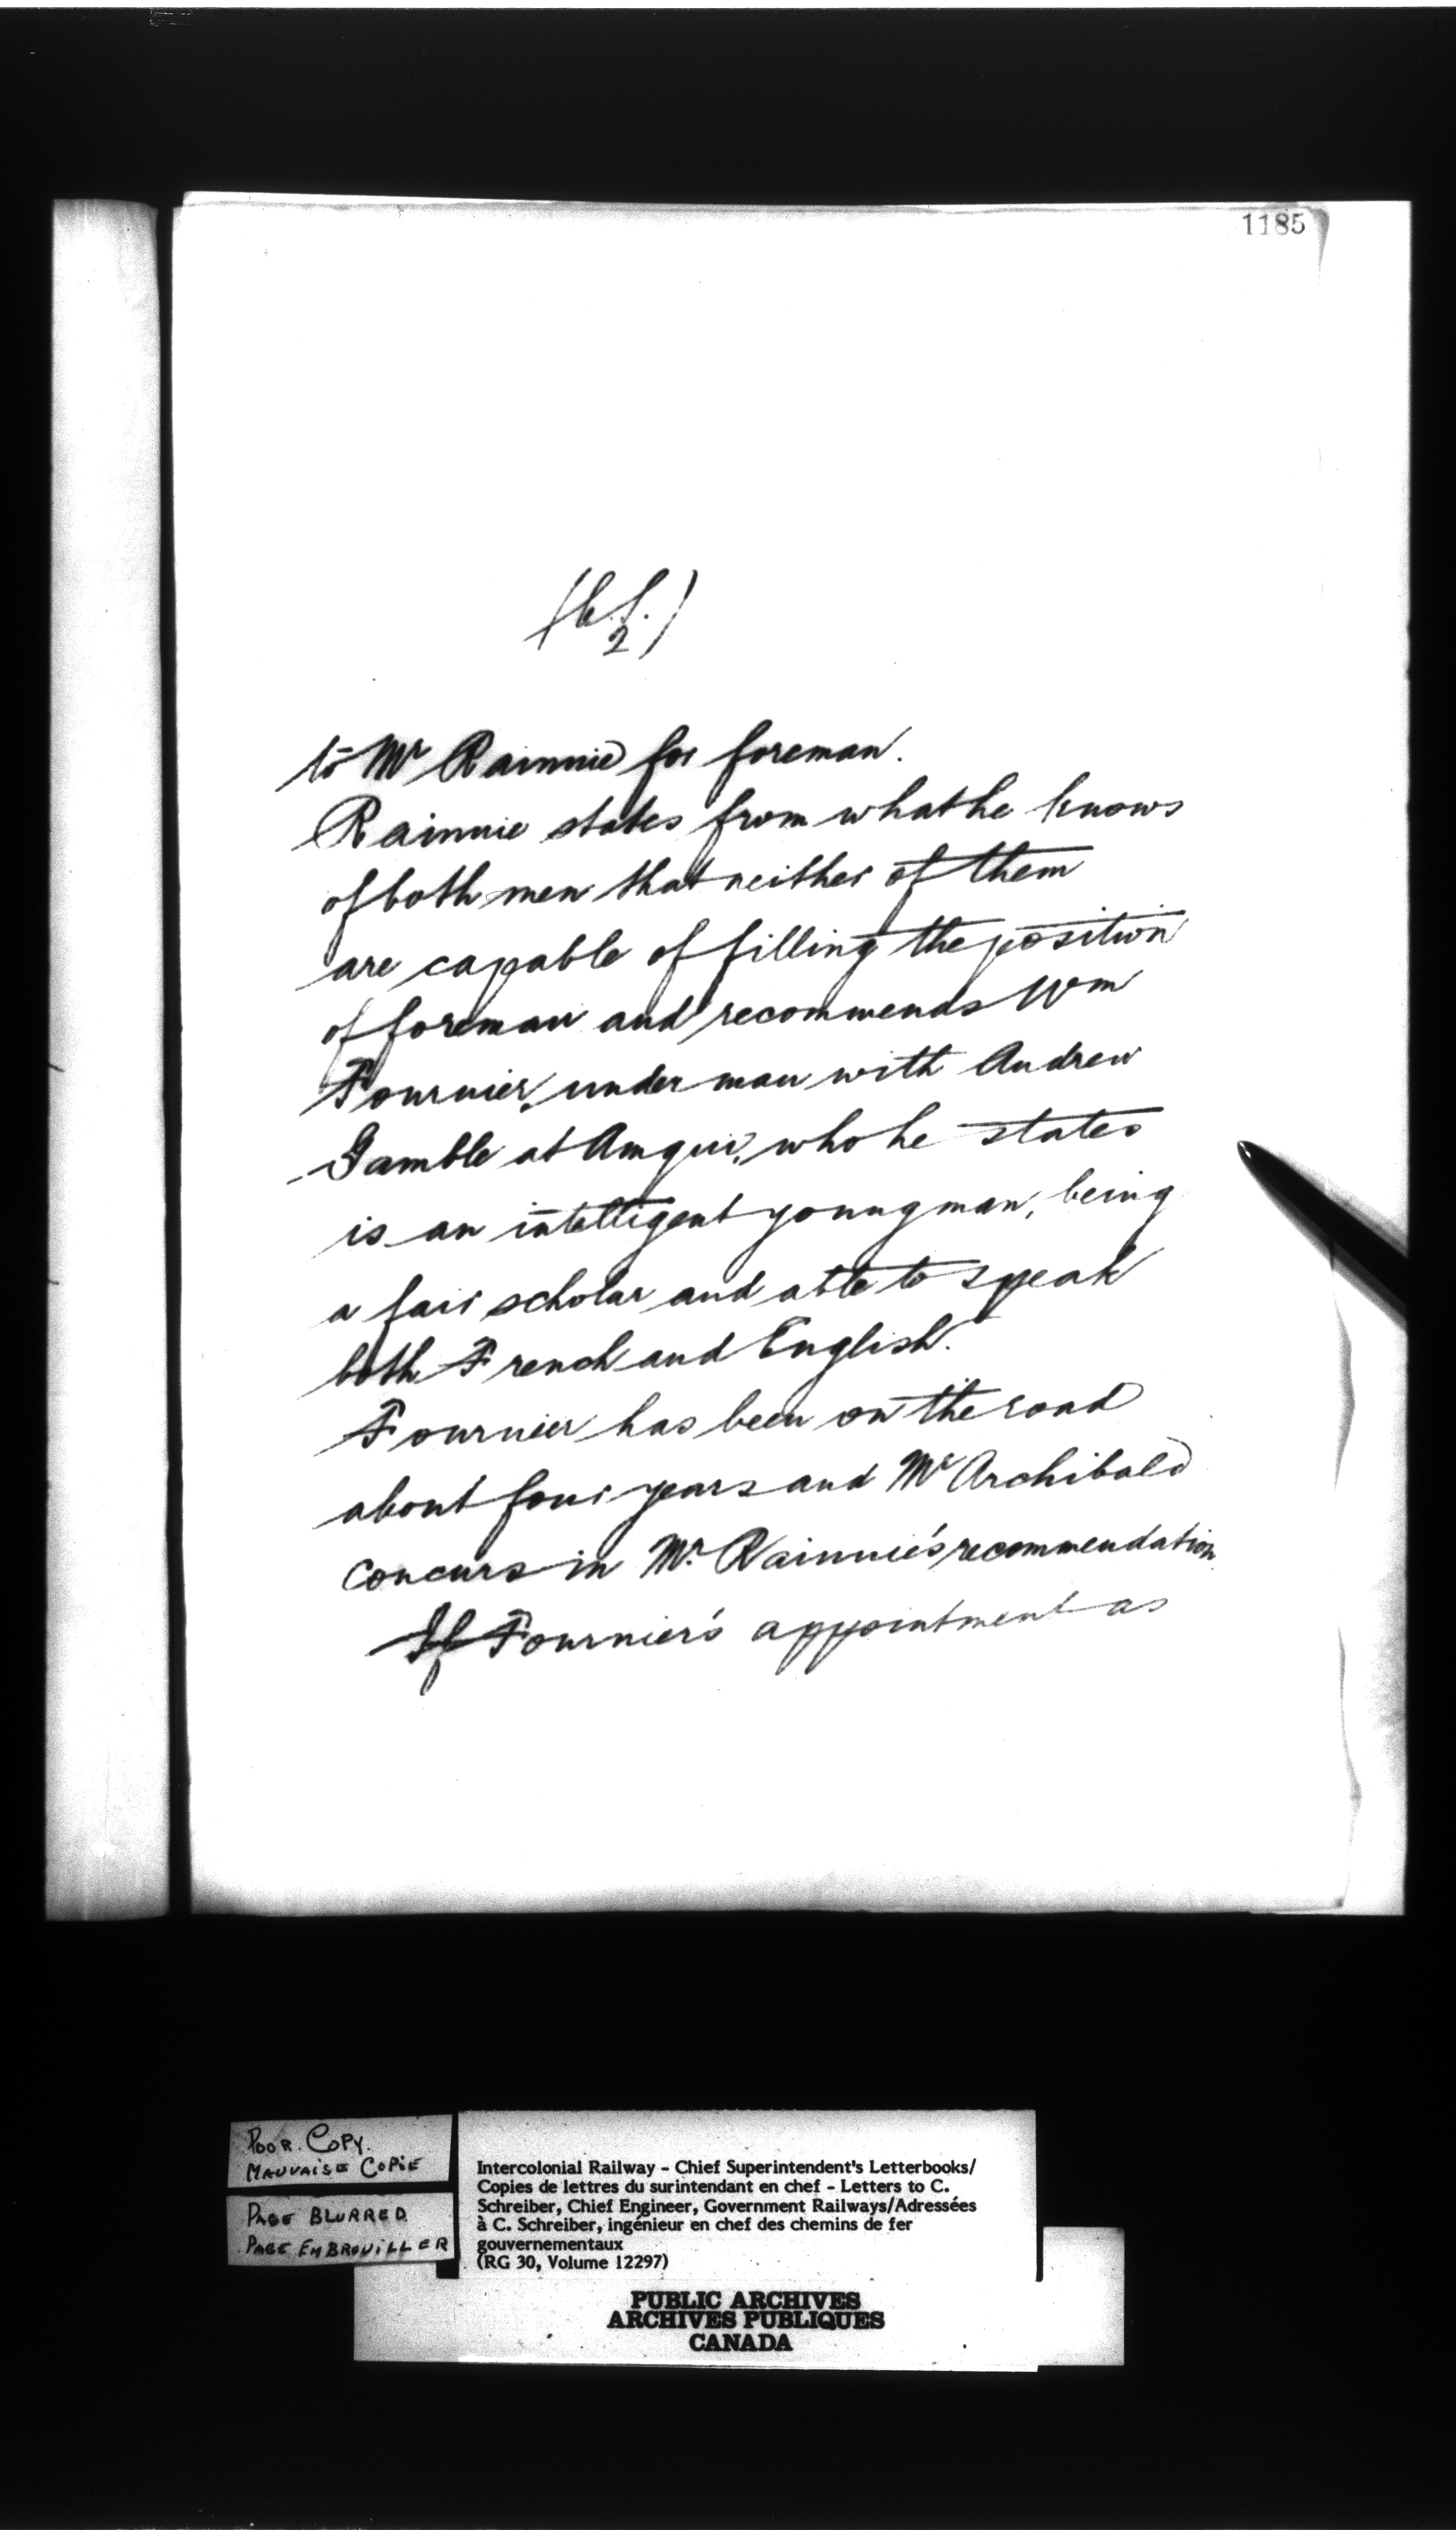 1185
(C.S.
2)
to Mr Rainnie for foreman.
Rainnie states from what he knows
of both men that neither of them
are capable of filling the position
of foreman and recommends Wm
Fournier, under man with Andrew
Gamble at Amqui, who he states
is an intelligent young man, being
a fair scholar and able to speak
both French and English.
Fournier has been on the road
about four years and Mr Archibald
concurs in Mr. Rainnie's recommendation
If Fournier's appointment as
POOR COPY.
MAUVAISE COPIE
PAGE BLURRED
PAGE EMBROUILLER
Intercolonial Railway - Chief Superintendent's Letterbooks/
Copies de lettres du surintendant en chef - Letters to C.
Schreiber, Chief Engineer, Government Railways/Adressées
à C. Schreiber, ingénieur en chef des chemins de fer
gouvernementaux
(RG 30, Volume 12297)
PUBLIC ARCHIVES
ARCHIVES PUBLIQUES
CANADA